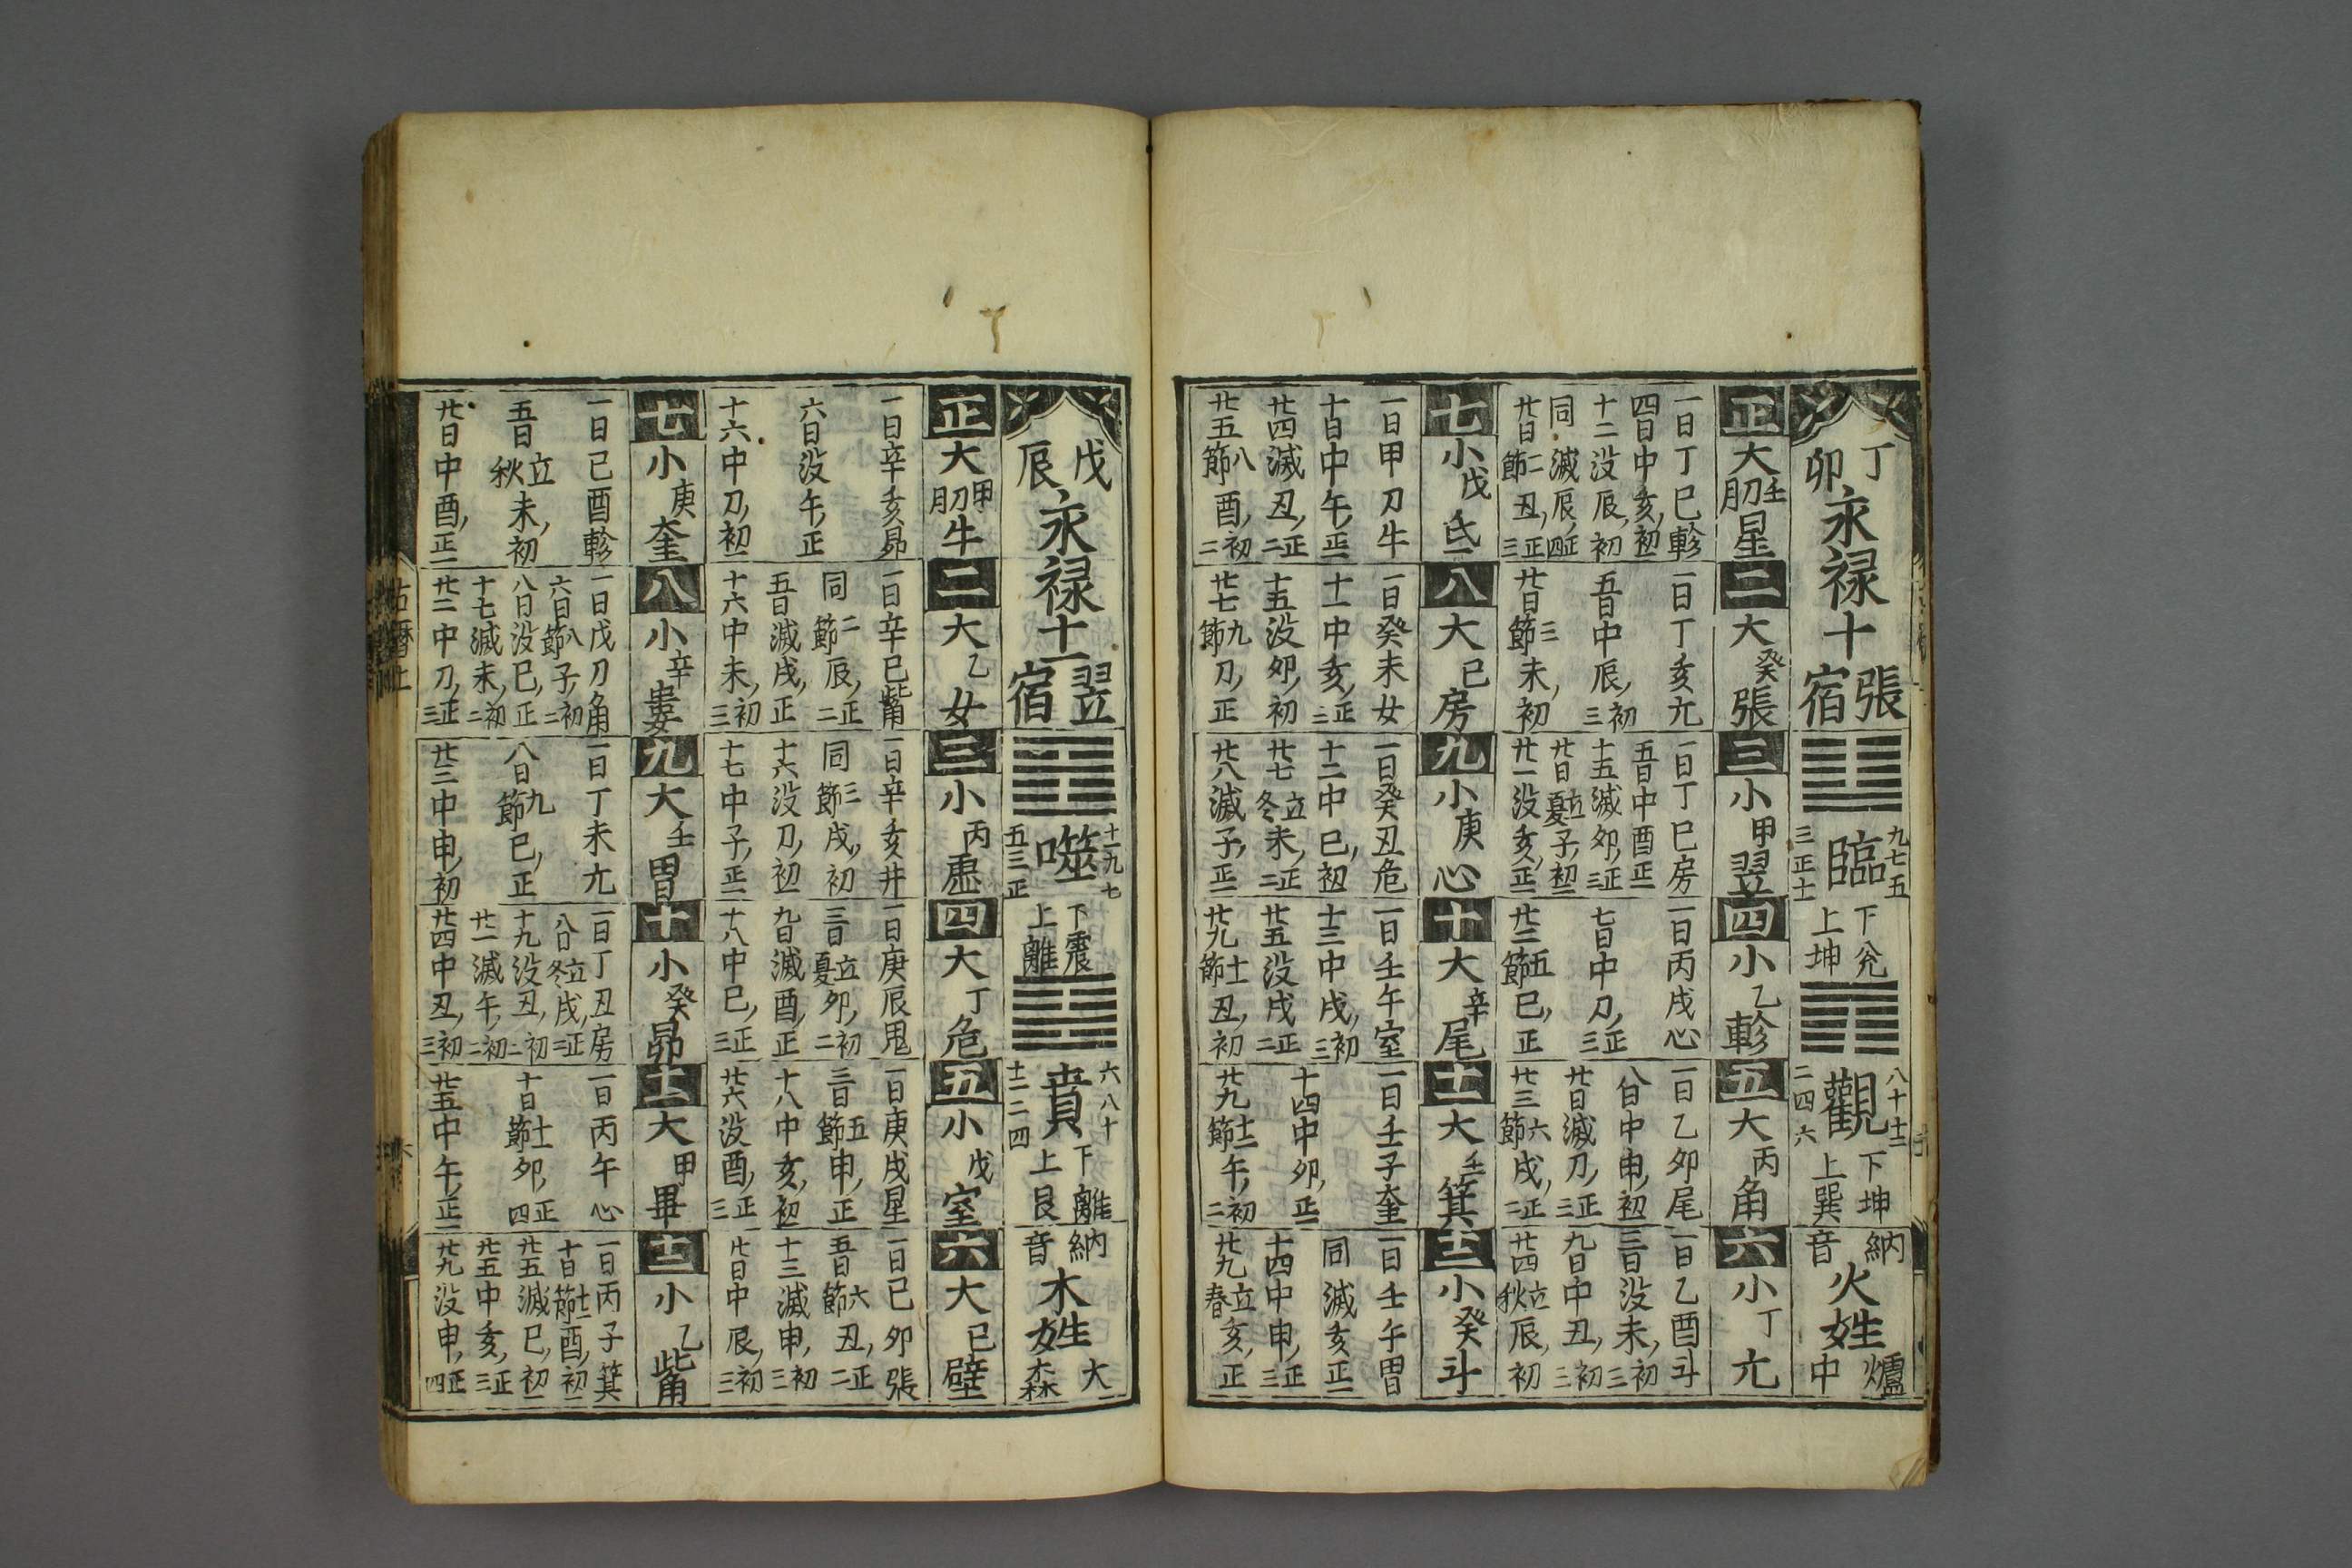 丁卯
永禄十
張宿
臨
九七五
三正十一
下兊
上坤
觀
八十十二
二四六
下坤
上巽
納音
火姓
爐中
正大
壬月刀
星
二大
癸
張
三小
甲
翌
四小
乙
軫
五大
丙
角
六小
丁
亢
一日丁巳軫
四日中亥初一
十二没辰初
同滅辰正四
廿日二節丑正三
一日丁亥亢
五日中辰初三
廿日三節未初
一日丁巳房
五日中酉正一
十五滅卯正三
廿日立夏子初二
廿一没亥正一
一日丙戌心
七日中刀正三
廿二五節巳正
一日乙卯尾
八日中申初一
廿日滅刀正三
廿三六節戌正二
一日乙酉斗
三日没未初三
九日中丑初三
廿四立秋辰初
七小
戊
氐
八大
巳
房
九小
庚
心
十大
辛
尾
十一大
壬
箕
十二小
癸
斗
一日甲刀牛
十日中午正一
廿四滅丑正二
廿五八節酉初二
一日癸未女
十一中亥正三
十五没卯初
廿七九節刀正
一日癸丑危
十二中巳初一
廿七立冬未正二
廿八滅子正一
一日壬午室
十三中戌初三
廿五没戌正二
廿九十一節丑初
一日壬子奎
十四中卯正一
廿九十二節午初二
一日壬午胃
同滅亥正一
十四中申正三
廿九立春亥正
戊辰
永禄十一
翌宿
噬
十一九七
五三正
下震
上離
賁
六八十
十二二四
下離
上艮
納音
木姓
大森
正大
甲月刀
牛
二大
乙
女
三小
丙
虚
四大
丁
危
五小
戊
室
六大
巳
壁
一日辛亥昴
六日没午正
十六中刀初一
一日辛巳觜
同二節辰正二
五日滅戌正
十六中未初三
一日辛亥井
同三節戌初
十六没刀初一
十七中子正一
一日庚辰鬼
三日立夏卯初二
九日滅酉正
十八中巳正三
一日庚戌星
三日五節申正
十八中亥初一
廿六没酉正三
一日巳卯張
五日六節丑正二
十三滅申初三
廿日中辰初三
七小
庚
奎
八小
辛
婁
九大
壬
胃
十小
癸
昴
十一大
甲
畢
十二小
乙
觜
一日己酉軫
五日立秋未初
廿日中酉正一
一日戊刀角
六日八節子初二
八日没巳正
十七滅未初二
廿二中刀正三
一日丁未亢
八日九節巳正
廿三中申初
一日丁丑房
八日立冬戌正三
十九没丑初二
廿一滅午初三
廿四中丑初三
一日丙午心
十日十一節卯正四
廿五中午正一
一日丙子箕
十日十二節酉初一
廿五滅巳初一
廿五中亥正三
廿九没申正四
古暦上